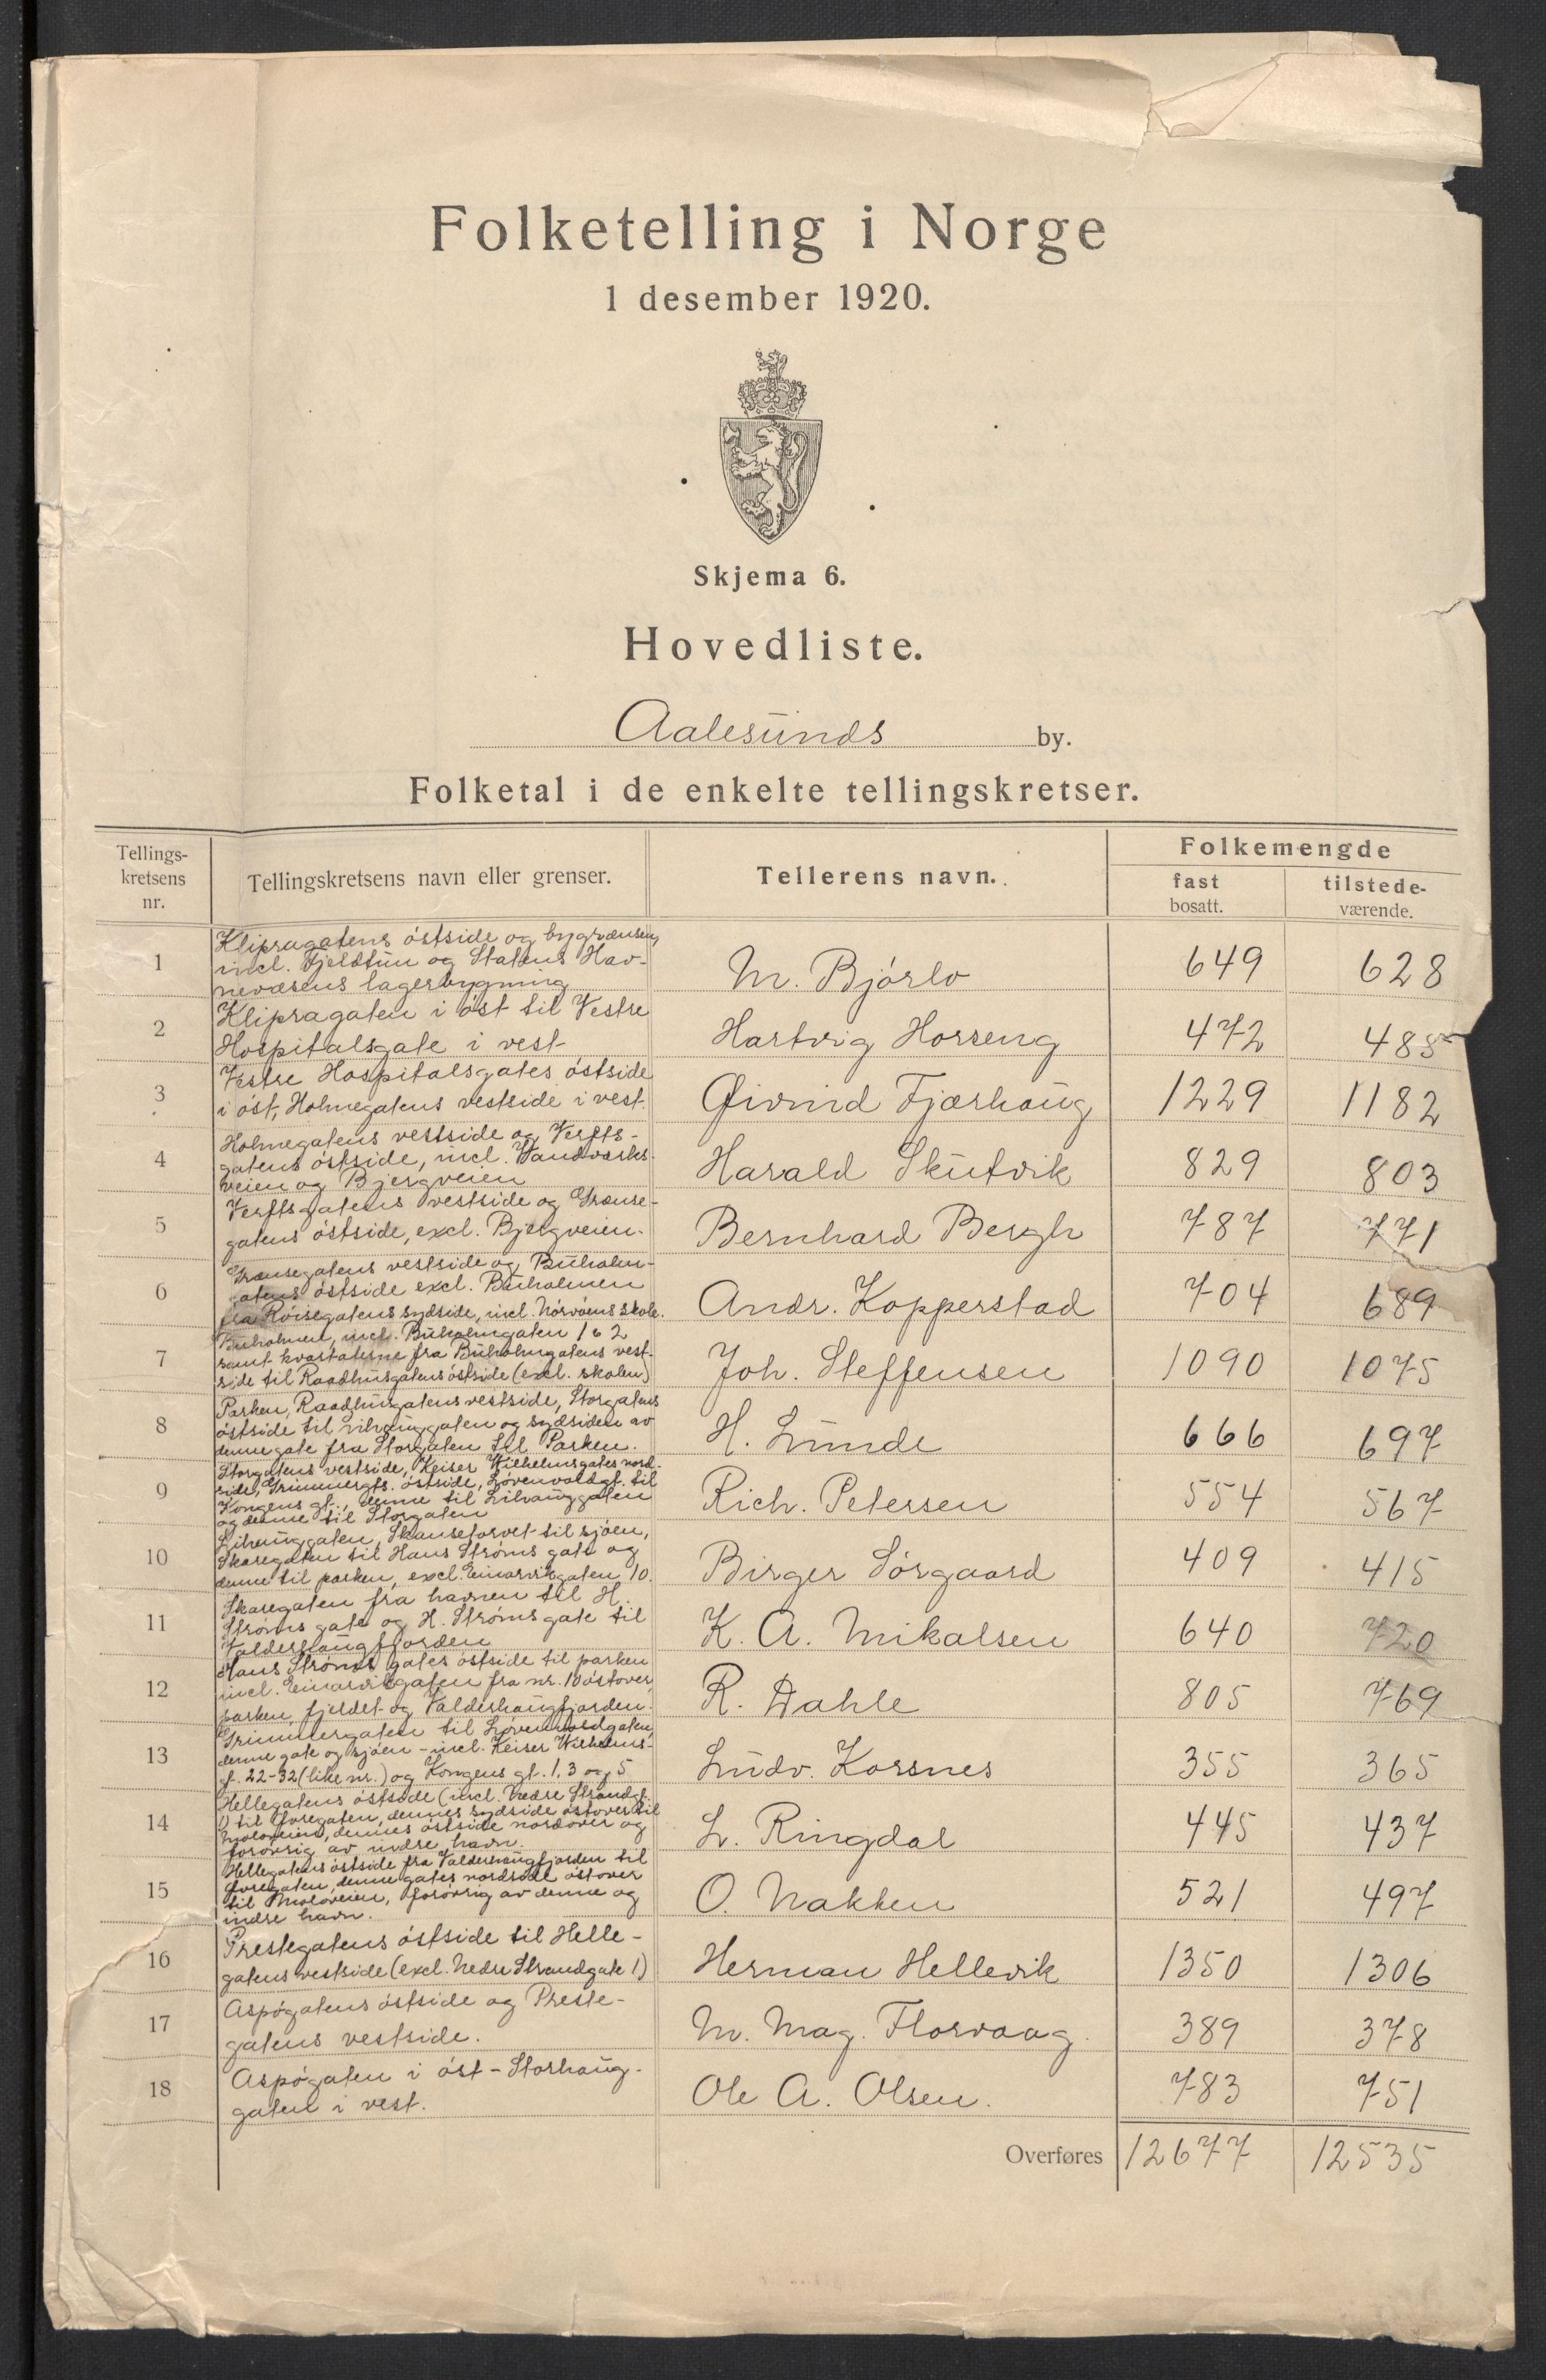 Folketelling i Norge
1 desember 1920.
Skjema 6.
Hovedliste.
Aalesunds by.
Folketal i de enkelte tellingskretser.
Tellings-
kretsens
nr.
Tellingskretsens navn eller grenser.
Tellerens navn.
Folkemengde
fast
bosatt.
tilstede-
værende.
1
Klipragatens østside og bygrænsen,
incl. Fjeldtun og Statens Hav-
nevæsens lagerbygning
M. Bjørlo
649
628
2
Klipragaten i øst til Vestre
Hospitalsgate i vest
Hartvig Horseng
472
485
3
Vestre Hospitalsgates østside
i øst, Holmegatens vestside i vest.
Øivind Fjærhaug
1229
1182
4
Holmegatens vestside og Verfts-
gatens østside, incl. Vandverks-
veien og Bjergveien
Harald Skutvik
829
803
5
Verftsgatens vestside og Grænse-
gatens østside, excl. Bjergveien.
Bernhard Bergh
787
771
6
Grænsegatens vestside og Buholm-
gatens østside excl. Buholmen
fra Røisegatens sydside, incl. Nørvøens skole.
Andr. Kopperstad
704
689
7
Buholmen, incl. Buholmgaten 1 & 2
samt kvartalerne fra Buholmgatens vest-
side til Raadhusgatens østside (excl. skolen)
Joh. Steffensen
1090
1075
8
Parken, Raadhusgatens vestside, Storgatens
østside til Lihauggaten og sydsiden av
denne gate fra Storgaten til Parken.
H. Lunde
666
697
9
Storgatens vestside, Keiser Wilhelmsgates nord-
side, Grimmergts. østside, Løvenvoldgt. til
Kongens gt., denne til Lihauggaten
og denne til Storgaten
Rich. Petersen
554
567
10
Lihauggaten, Skansetorvet til sjøen,
Skaregaten til Hans Strøms gate og
denne til parken, excl. Einarvikgaten 10.
Birger Sørgaard
409
415
11
Skaregaten fra havnen til H.
Strøms gate og H. Strøms gate til
Valderhaugfjorden
K. A. Mikalsen
640
720
12
Hans Strøms gates østside til parken
incl. Einarvikgaten fra nr. 10 østover,
parken, fjeldet og Valderhaugfjorden.
R. Dahle
805
769
13
Grimmergaten til Løvenvoldgaten,
denne gate og sjøen - incl. Keiser Wilhelms-
gt. 22-32 (like nr.) og Kongens gt. 1, 3 og 5
Ludv. Korsnes
355
365
14
Hellegatens østside (incl. Nedre Strandgt.
1) til foregaten, dennes sydside østover til
Moloveien, dennes østside nordover og
forøvrig av indre havn.
L. Ringdal
445
437
15
Hellegatens østside fra Valderhaugfjorden til
foregaten, denne gates nordside østover
til Moloveien, forøvrig av denne og
indre havn.
O. Nakken
521
497
16
Prestegatens østside til Helle-
gatens vestside (excl. Nedre Strandgate 1)
Herman Hellevik
1350
1306
17
Aspøgatens østside og Preste-
gatens vestside.
M. Mag. Florvaag.
389
378
18
Aspøgaten i øst - Storhaug-
gaten i vest.
Ole A. Olsen.
783
751
Overføres
12677
12535